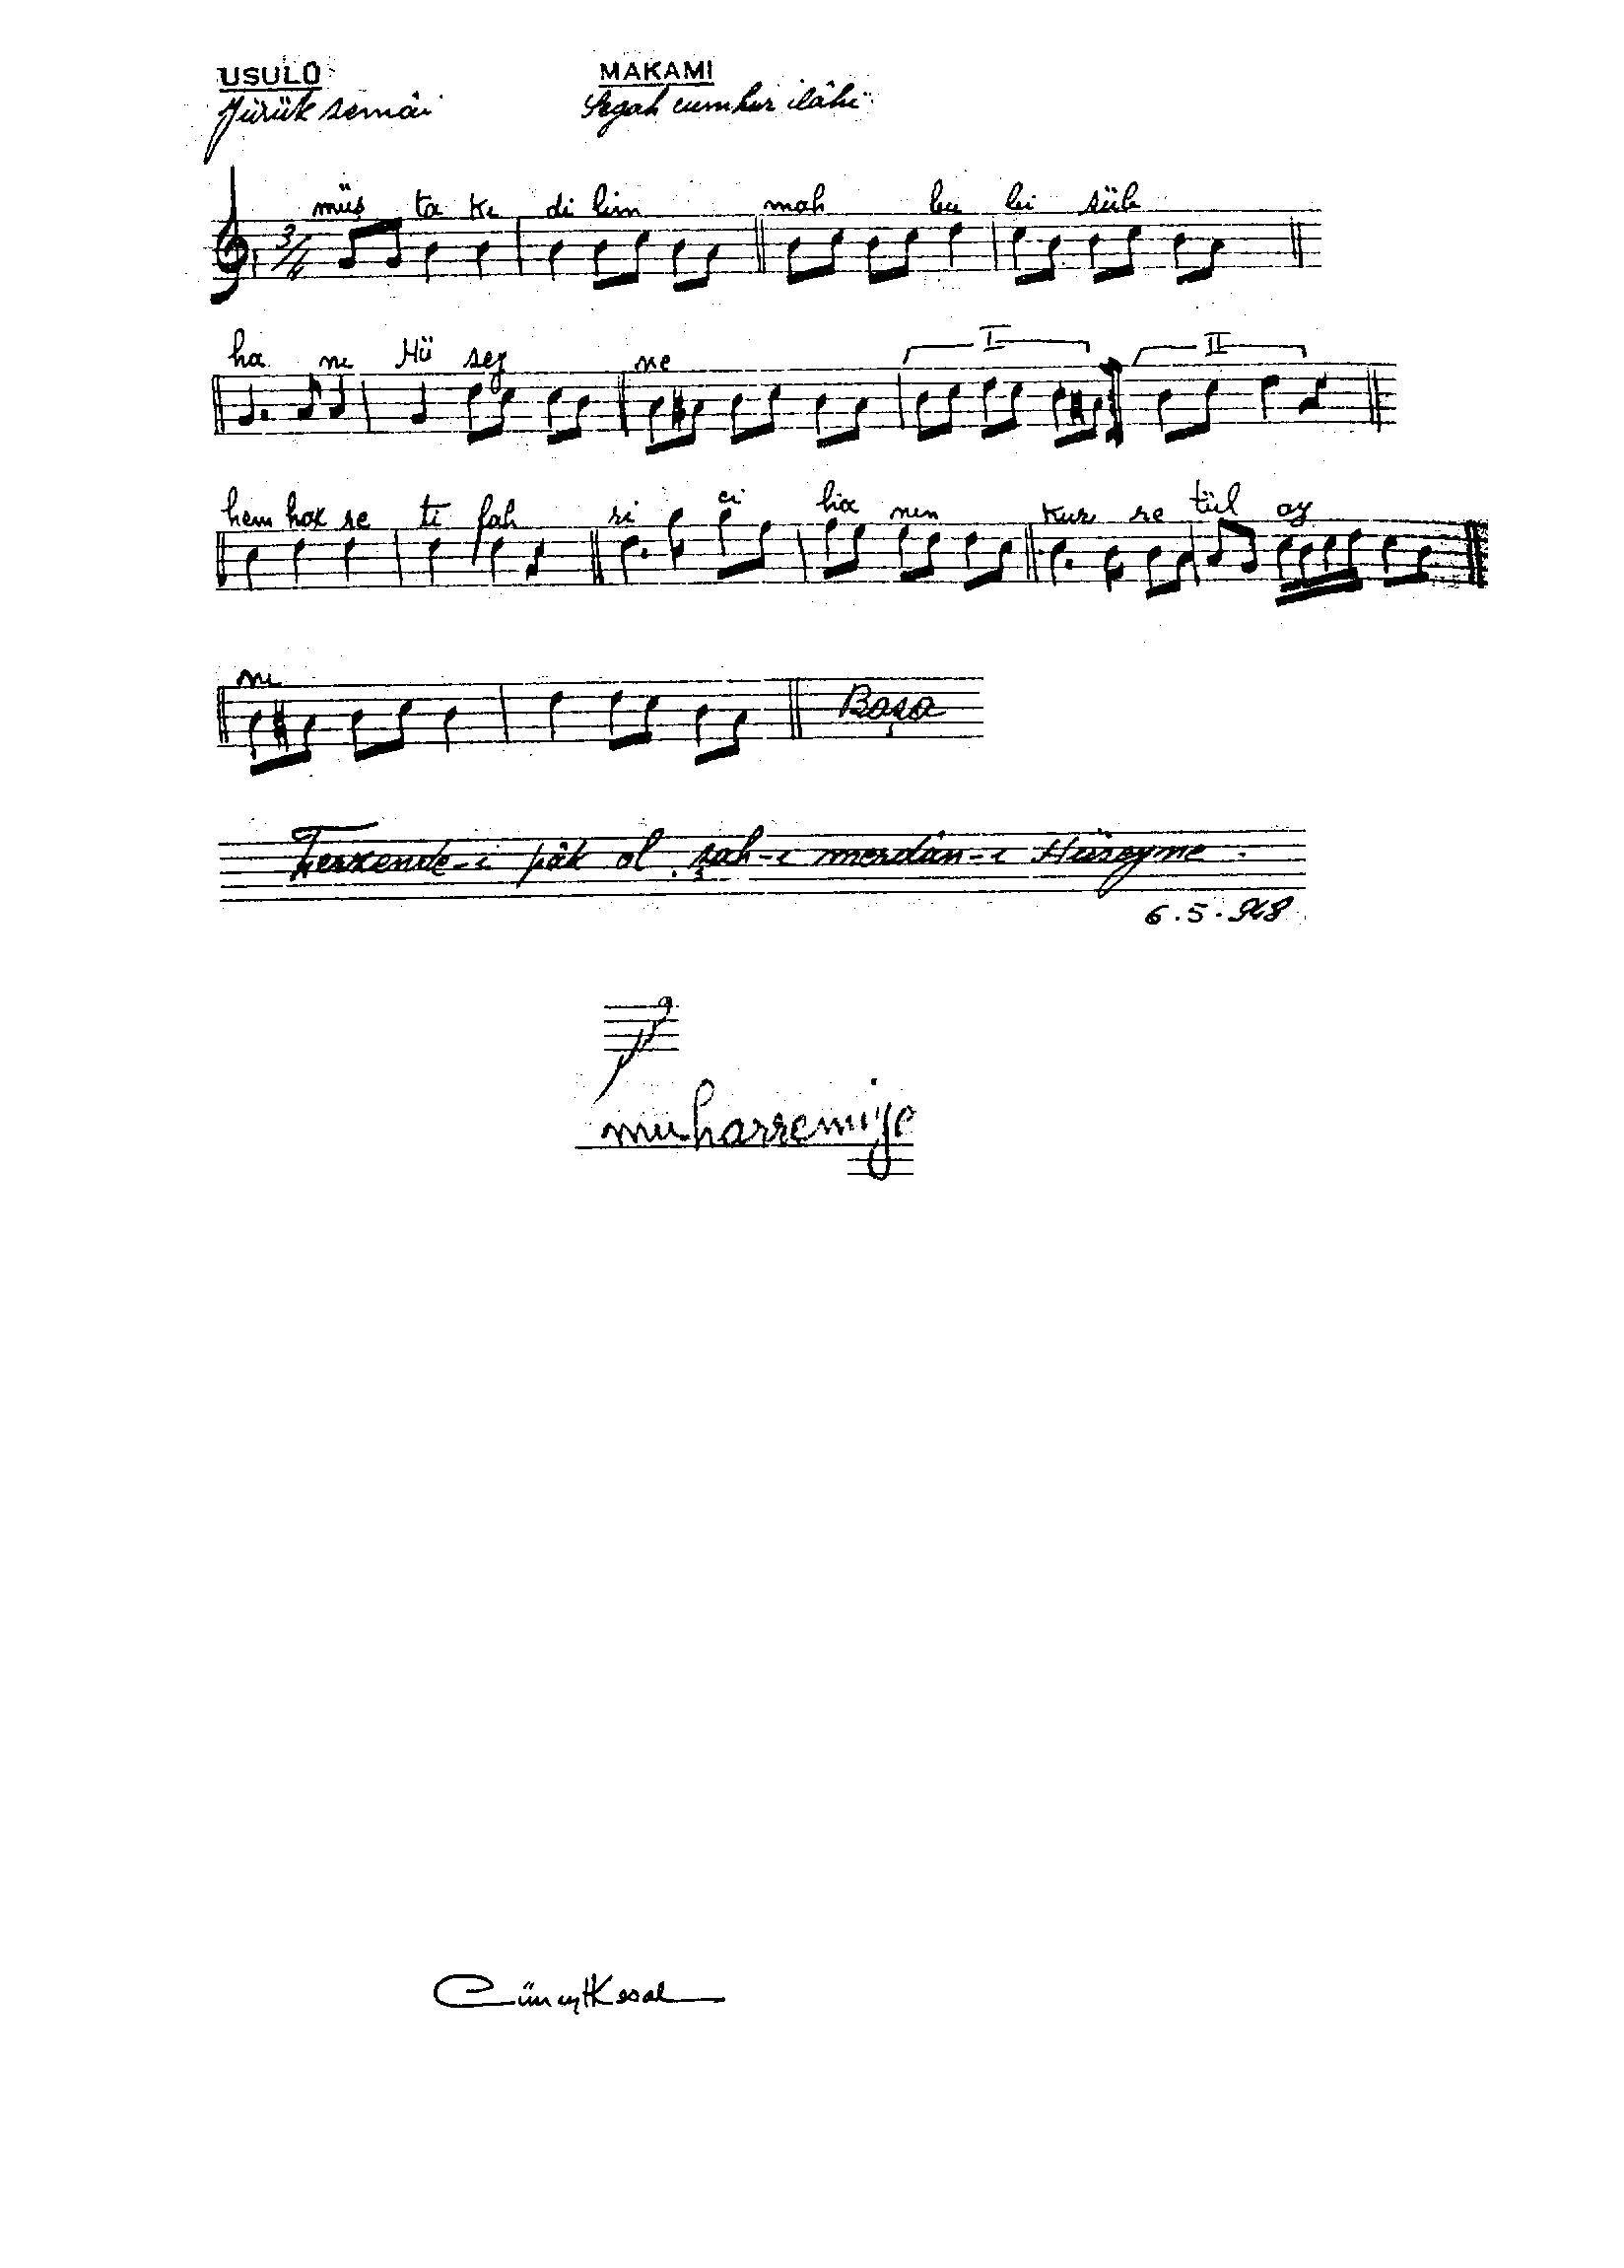 USULÜ MAKAMI
Yürük semâi Segah cumhur ilâhi
3/4 müş ta kı di lim mah bu bi süb
ha nı Hü sey ne I II
hem has re ti fah ri ci ha nın kur re tül ay
nı Başa
Ferzende-i pâk ol şah-ı merdân-ı Hüseyne.
6.5.968
muharremiye
Cüneyt Kosal